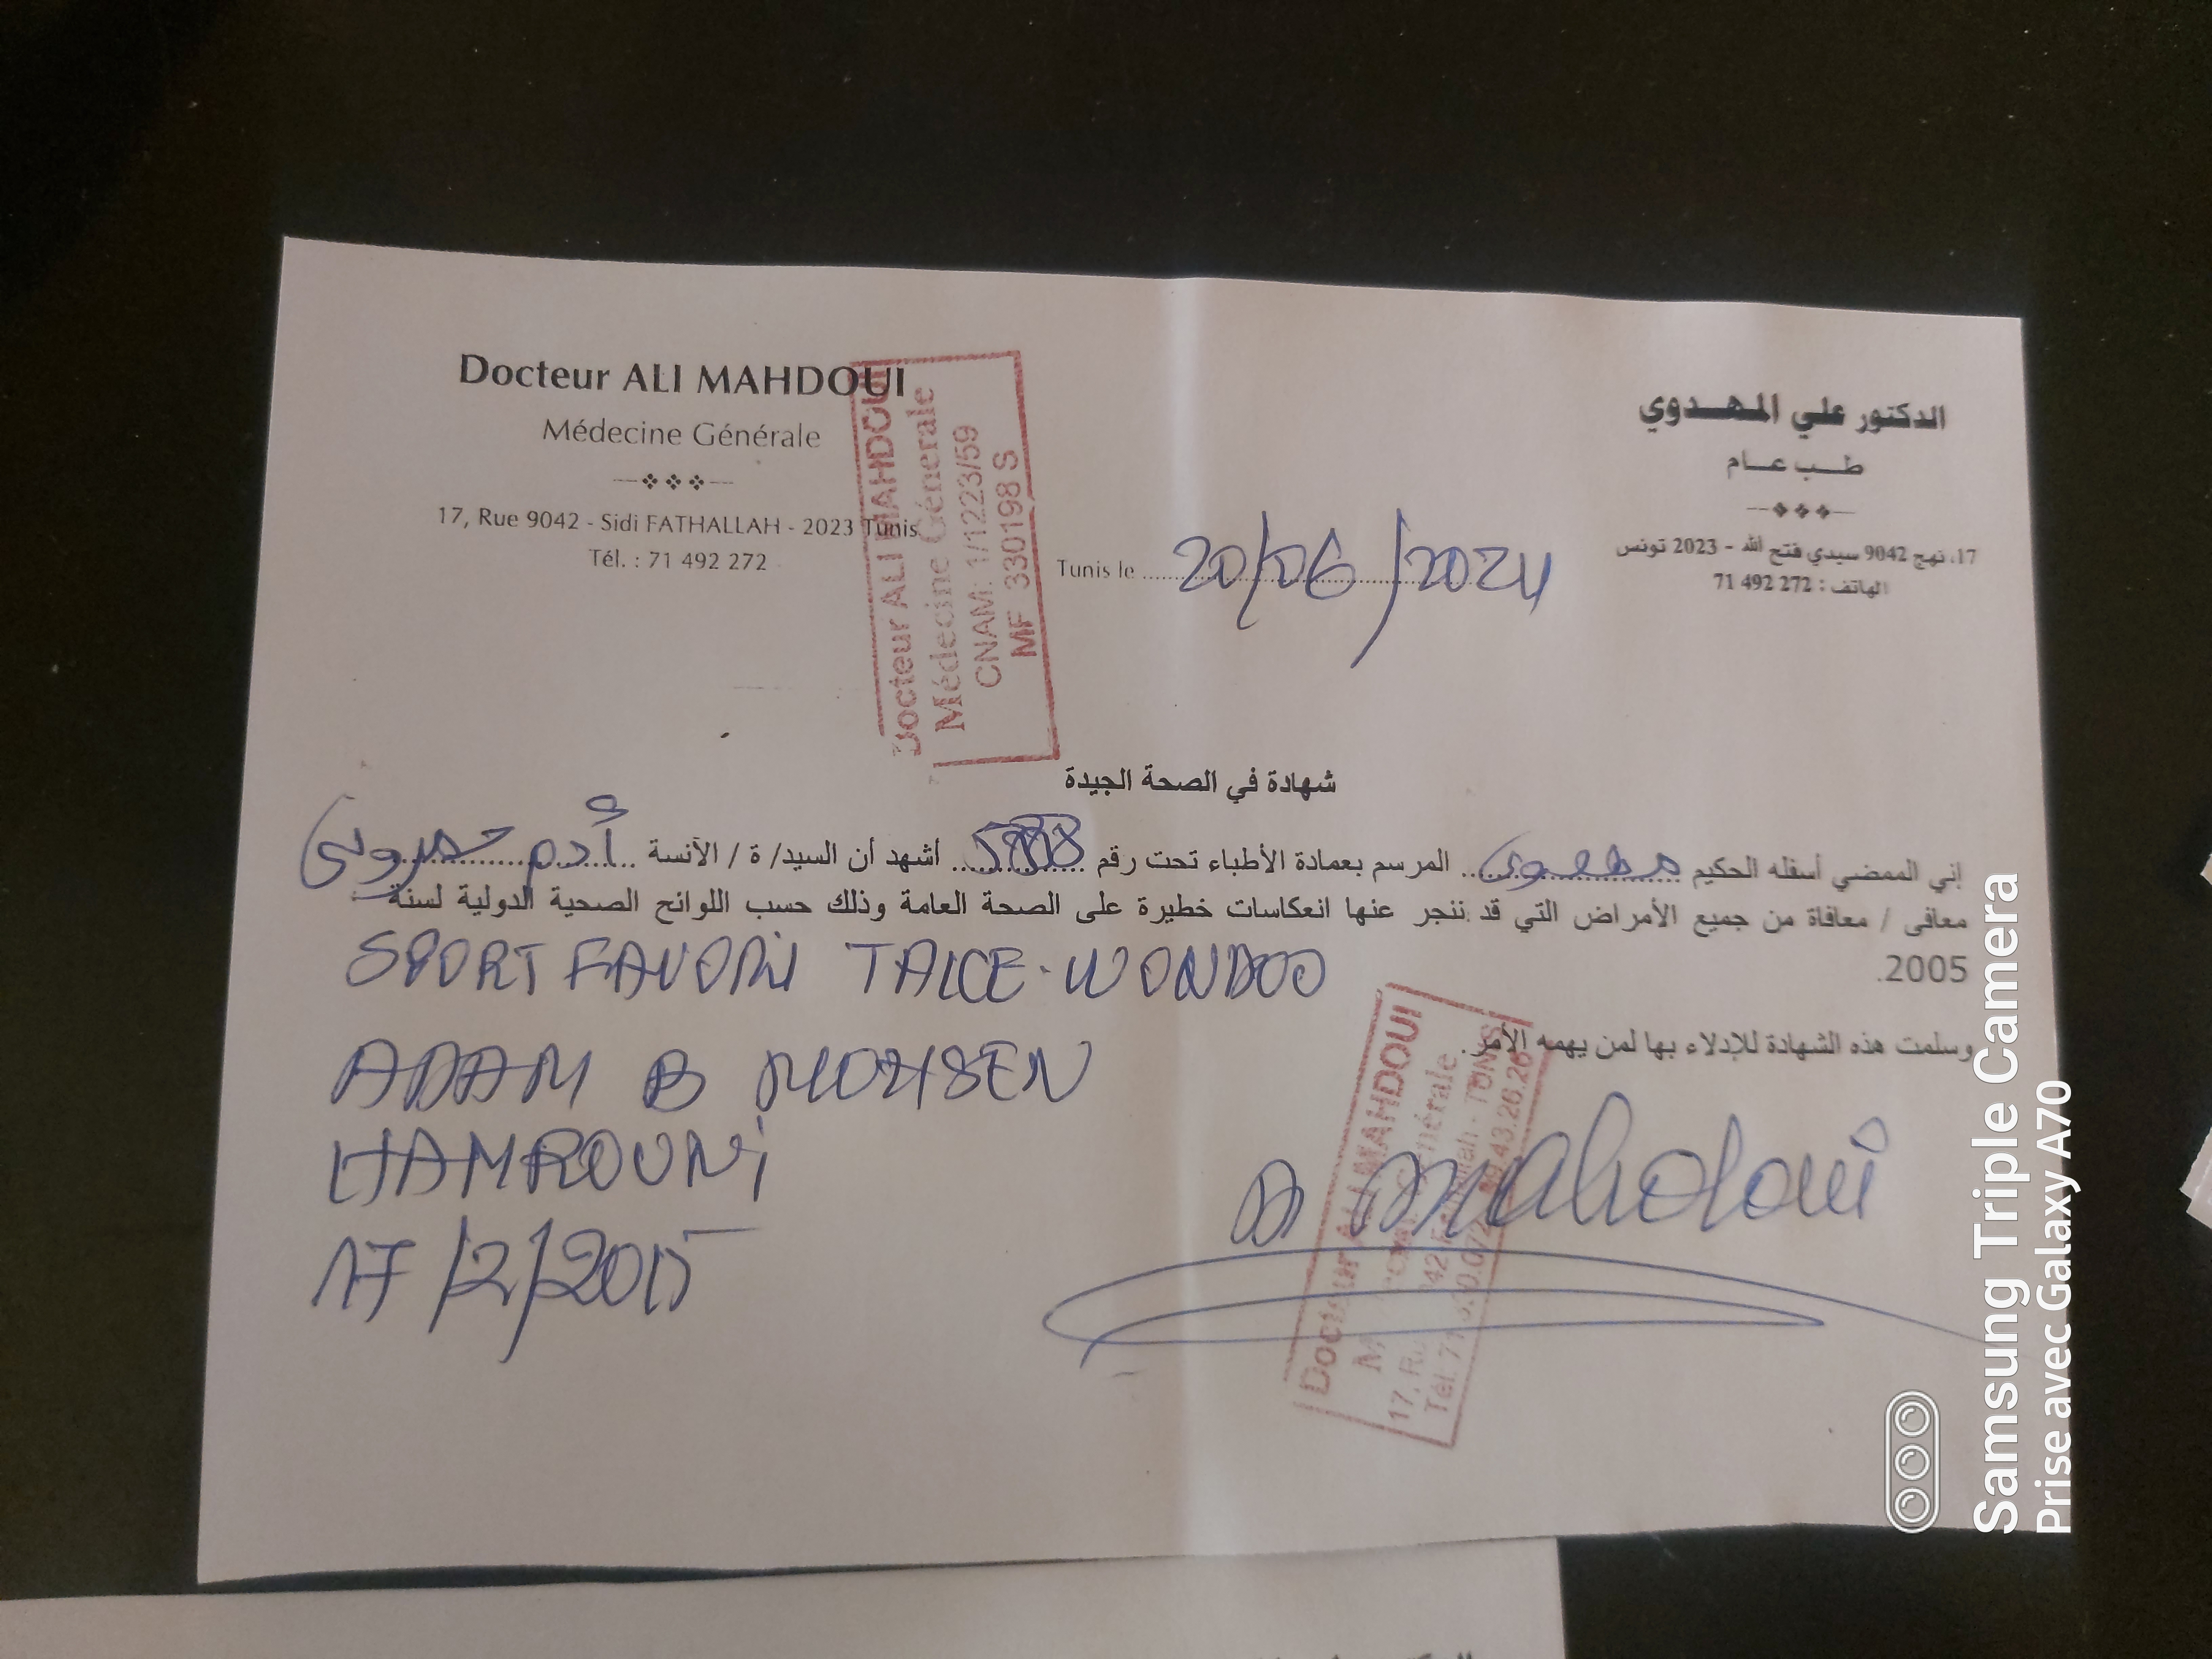 Docteur ALI MAHDOUI
Médecine Générale
17, Rue 9042 - Sidi FATHALLAH - 2023 Tunis
Tél. : 71 492 272
الدكتور علي المهدوي
طب عام
17، نهج 9042 سيدي فتح الله - 2023 تونس
الهاتف : 272 492 71
Docteur ALI MAHDOUI
Médecine Générale
CNAM: 1/1223/59
MF 330198 S
Tunis le 20/06/2024
شهادة في الصحة الجيدة
إني الممضي أسفله الحكيم المرسم بعمادة الأطباء تحت رقم أشهد أن السيد/ ة / الأنسة أدم حمروني
معافى / معافاة من جميع الأمراض التي قد ننجر عنها انعكاسات خطيرة على الصحة العامة وذلك حسب اللوائح الصحية الدولية لسنة
2005.
SPORT FAVORI TAICE-WONDOO
وسلمت هذه الشهادة للإدلاء بها لمن يهمه الأمر.
ADAM B MOHSEN
HAMROUNI
17/2/2015
Docteur ALI MAHDOUI
Mahdoui
Samsung Triple Camera
Prise avec Galaxy A70